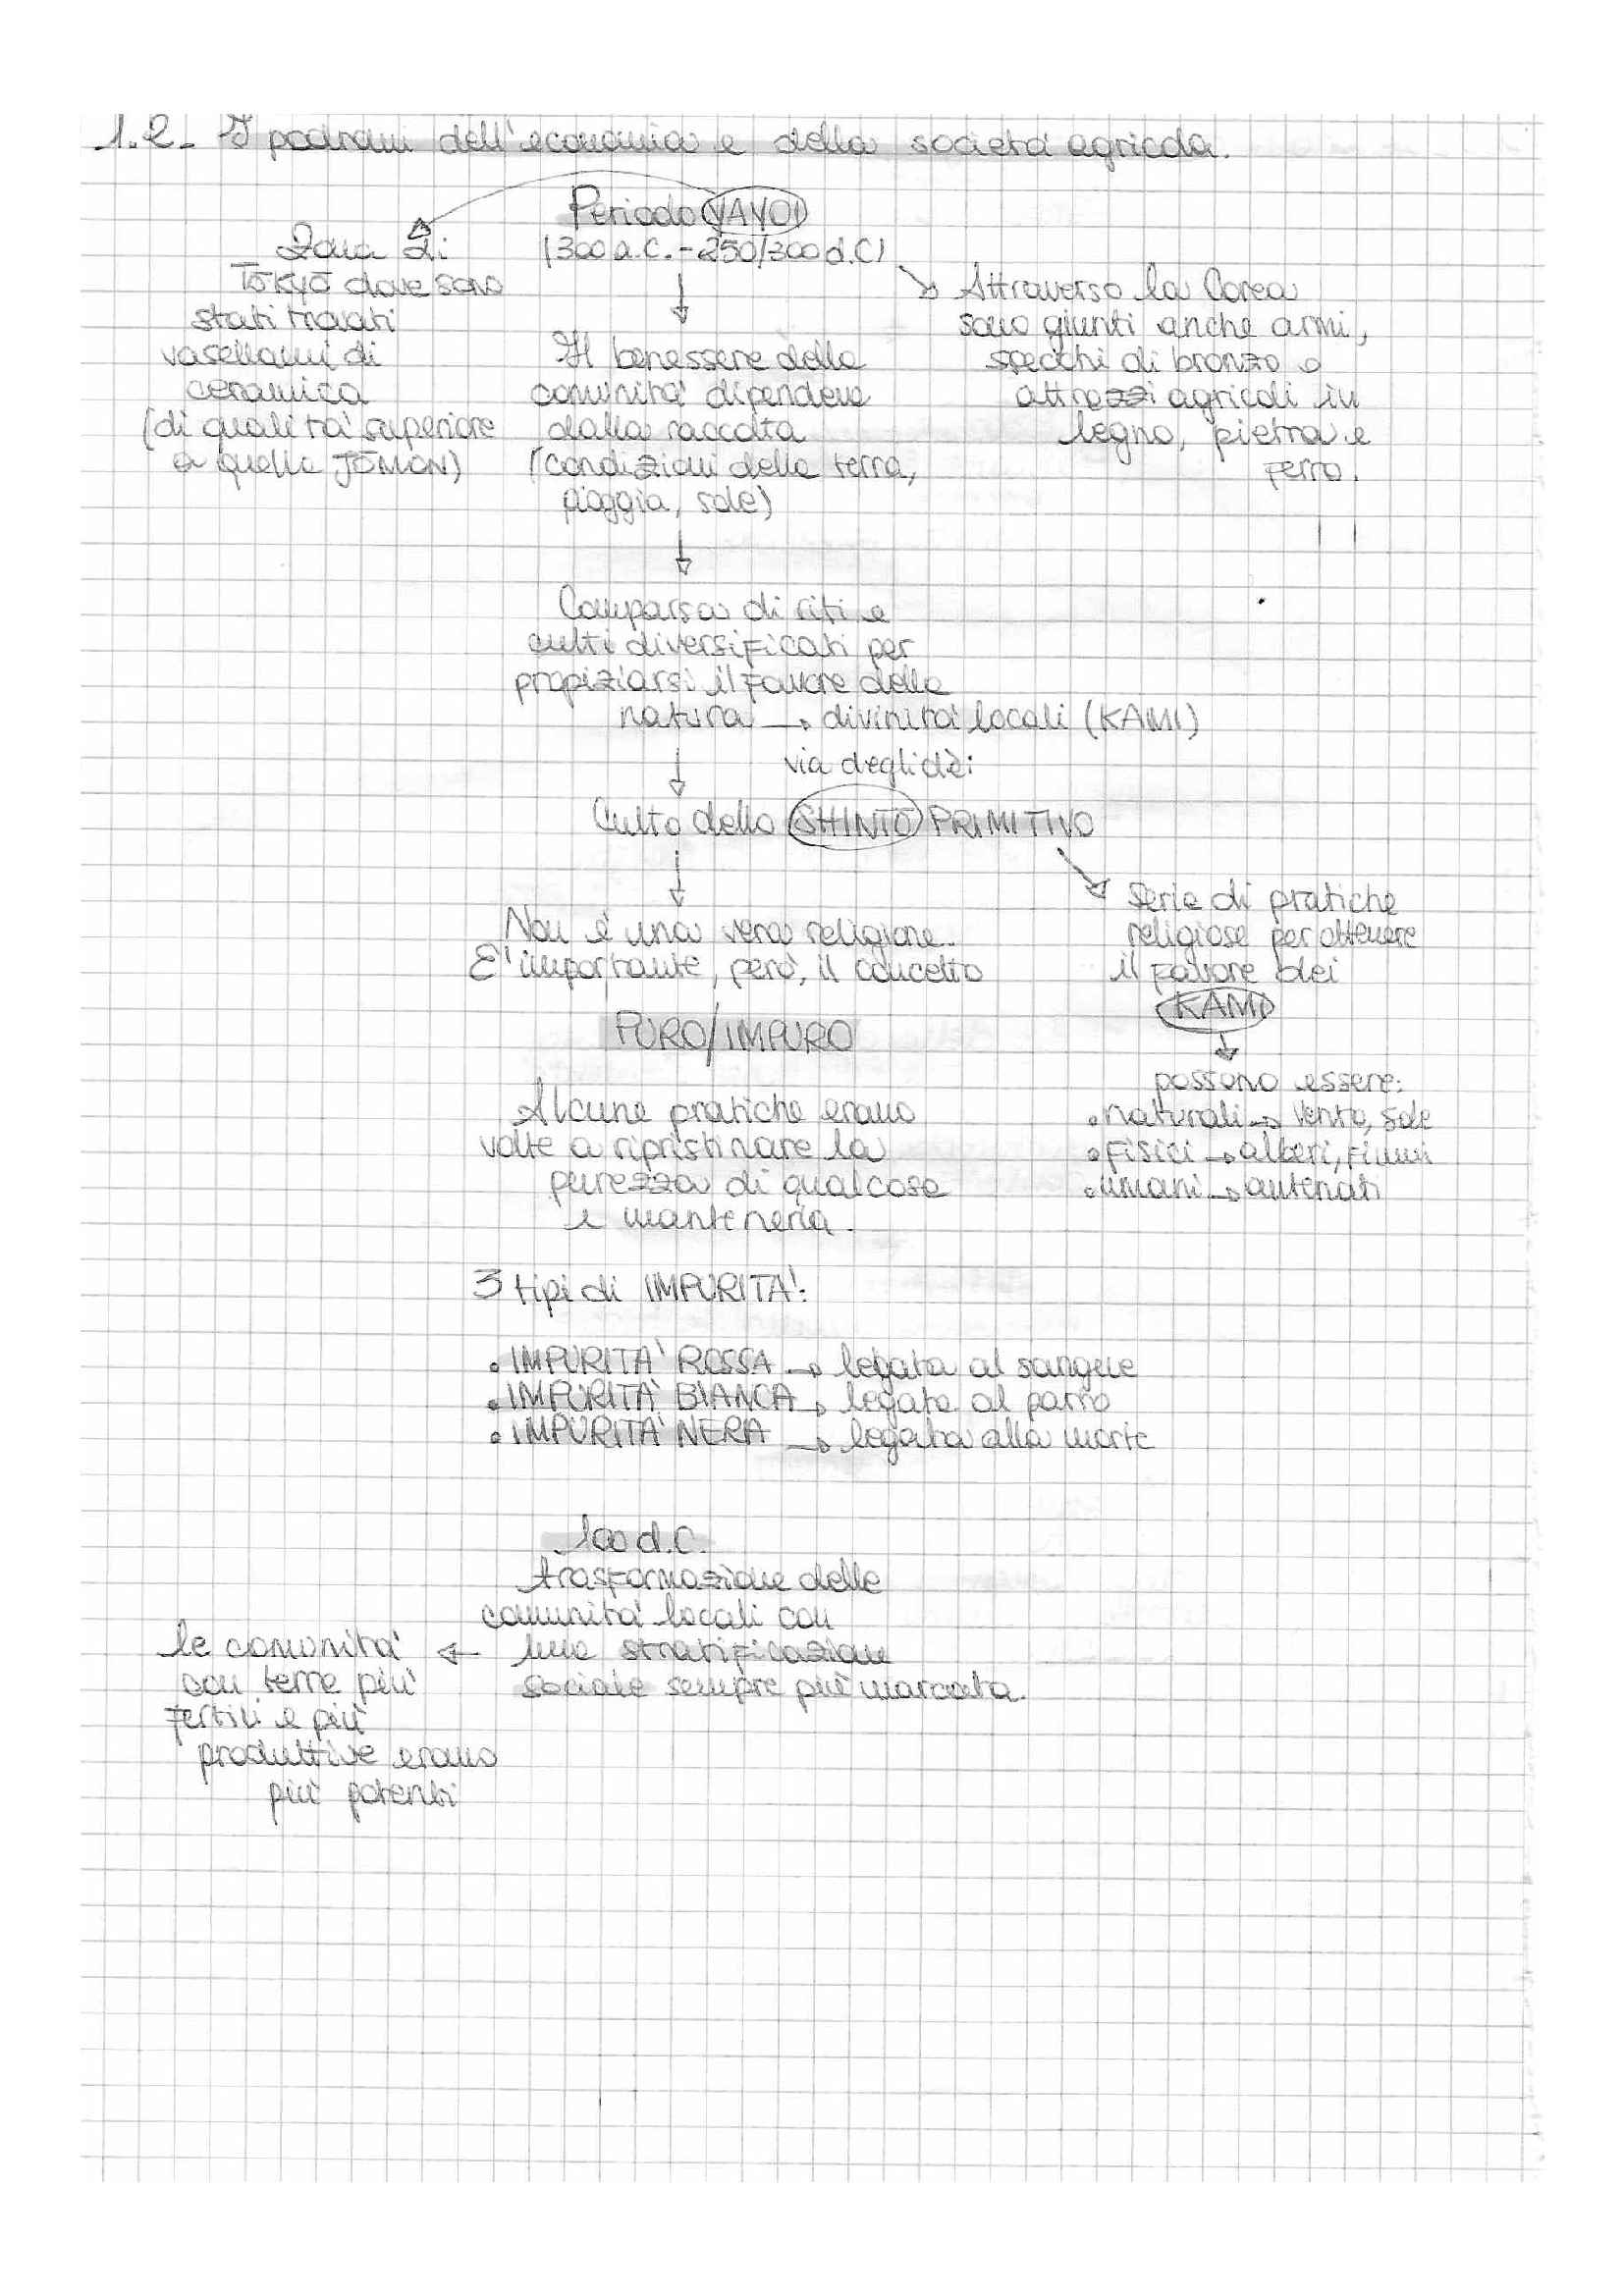 1.2- I padroni dell'economia e della società agricola.
Periodo YAYOI
(300 a.C. - 250/300 d.C)
Zona di
TŌKYŌ dove sono
stati trovati
vasellami di
ceramica
(di qualità superiore
a quella JŌMON)
Il benessere della
comunità dipendeva
dalla raccolta
(condizioni della terra,
pioggia, sole)
Attraverso la Corea
sono giunti anche armi,
specchi di bronzo e
attrezzi agricoli in
legno, pietra e
ferro.
Comparsa di riti e
culti diversificati per
propiziarsi il favore della
natura → divinità locali (KAMI)
via degli dèi
Culto dello SHINTŌ PRIMITIVO
Non è una vera religione.
E' importante, però, il concetto
PURO/IMPURO
Alcune pratiche erano
volte a ripristinare la
purezza di qualcosa
e mantenerla.
Serie di pratiche
religiose per ottenere
il favore dei
KAMI
possono essere:
• naturali → vento, sole
• fisici → alberi, fiumi
• umani → antenati
3 tipi di IMPURITA':
• IMPURITA' ROSSA → legata al sangue
• IMPURITA' BIANCA → legata al parto
• IMPURITA' NERA → legata alla morte
100 d.C.
trasformazione delle
comunità locali con
una stratificazione
sociale sempre più marcata.
le comunità
con terre più
fertili e più
produttive erano
più potenti